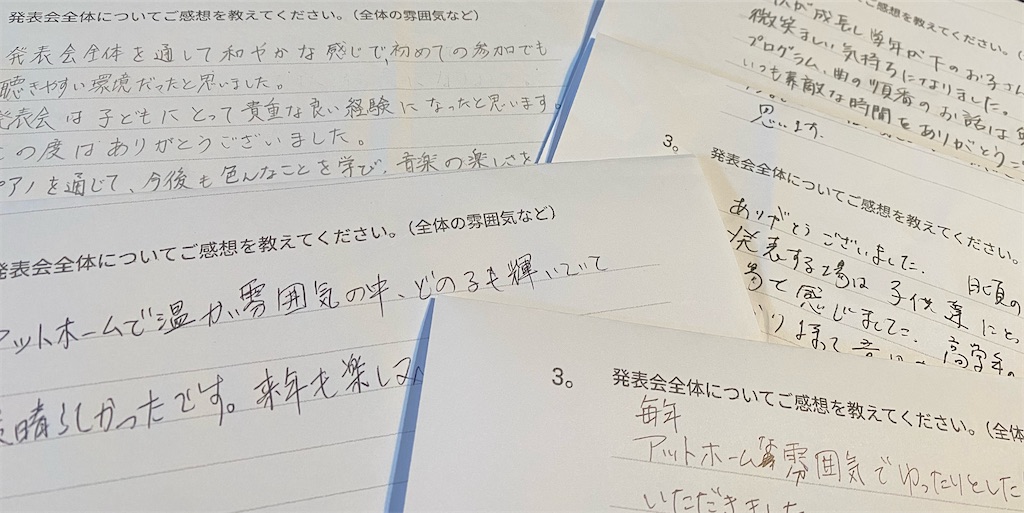 発表会全体についてご感想を教えてください。(全体の雰囲気など)
発表会全体を通して和やかな感じで、初めての参加でも
聴きやすい環境だったと思いました。
発表会は子どもにとって貴重な良い経験になったと思います。
この度はありがとうございました。
ピアノを通じて、今後も色んなことを学び、音楽の楽しさを
発表会全体についてご感想を教えてください。(全体の雰囲気など)
アットホームで温かい雰囲気の中、どの子も輝いていて
晴らしかったです。来年も楽しみ
ご感想を教えてください。
が成長し学年が下のお子さん
微笑ましい気持ちになりました。
プログラム、曲の順番のお話は
いつも素敵な時間をありがとうご
思います。
3。
発表会全体についてご感想を教えてください。
ありがとうございました。日頃の
発表する場は子供達にと
て感じました。高学年
3。
発表会全体についてご感想を教えてください。(全体
毎年
アットホームな雰囲気でゆったりとした
いただきました